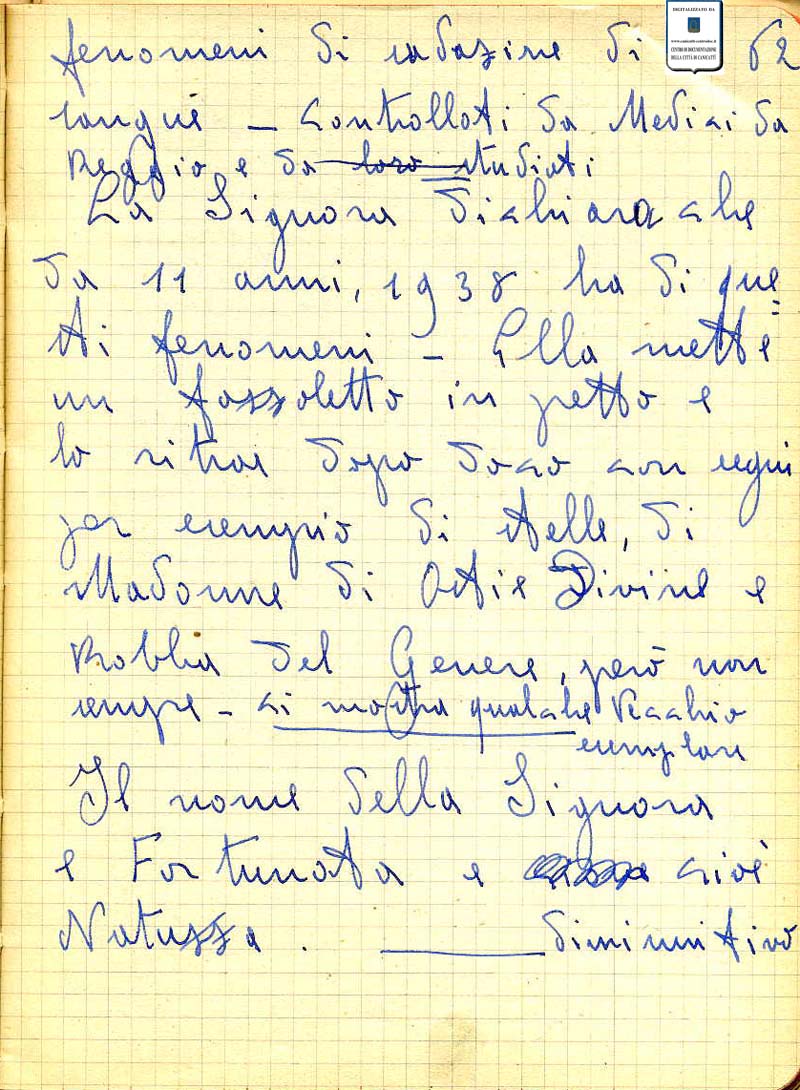 DIGITALIZZATO DA
CENTRO DI DOCUMENTAZIONE
DELLA CITTÀ DI CANICATTÌ
62
fenomeni di sudazine di
sangue – controllati da Medici da
Reggio e da loro studiati
La Signora dichiara che
da 11 anni, 1938 ha di que=
sti fenomeni – Ella mette
un fazzoletto in petto e
lo ritrae dopo poco con segni
per esempio di stelle, di
Madonne di Ostie Divine e
Robba del Genere, però non
sempre – ci mostra qualche Vecchio
esemplare
Il nome della Signora
e Fortunata e cioè
Natuzza. diminutivo